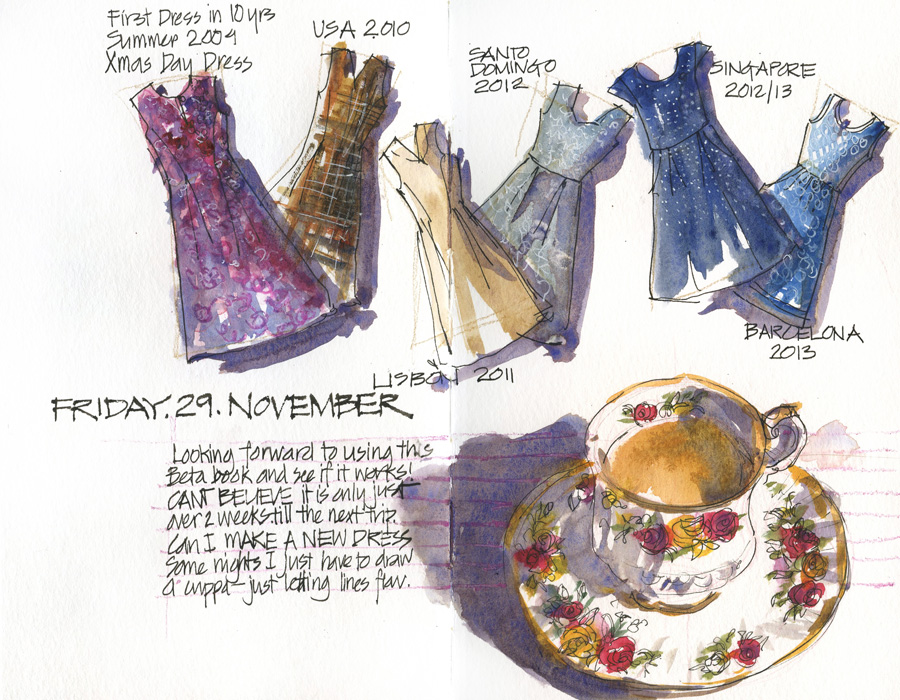 First Dress in 10 yrs
Summer 2004
Xmas Day Dress
USA 2010
SANTO
DOMINGO
2012
SINGAPORE
2012/13
BARCELONA
2013
LISBON 2011
FRIDAY.29.NOVEMBER
Looking forward to using this
Beta book and see if it works!
CANT BELIEVE it is only just
over 2 weeks till the next trip.
Can I MAKE A NEW DRESS
Some nights I just have to draw
a cuppa - just letting lines flow.